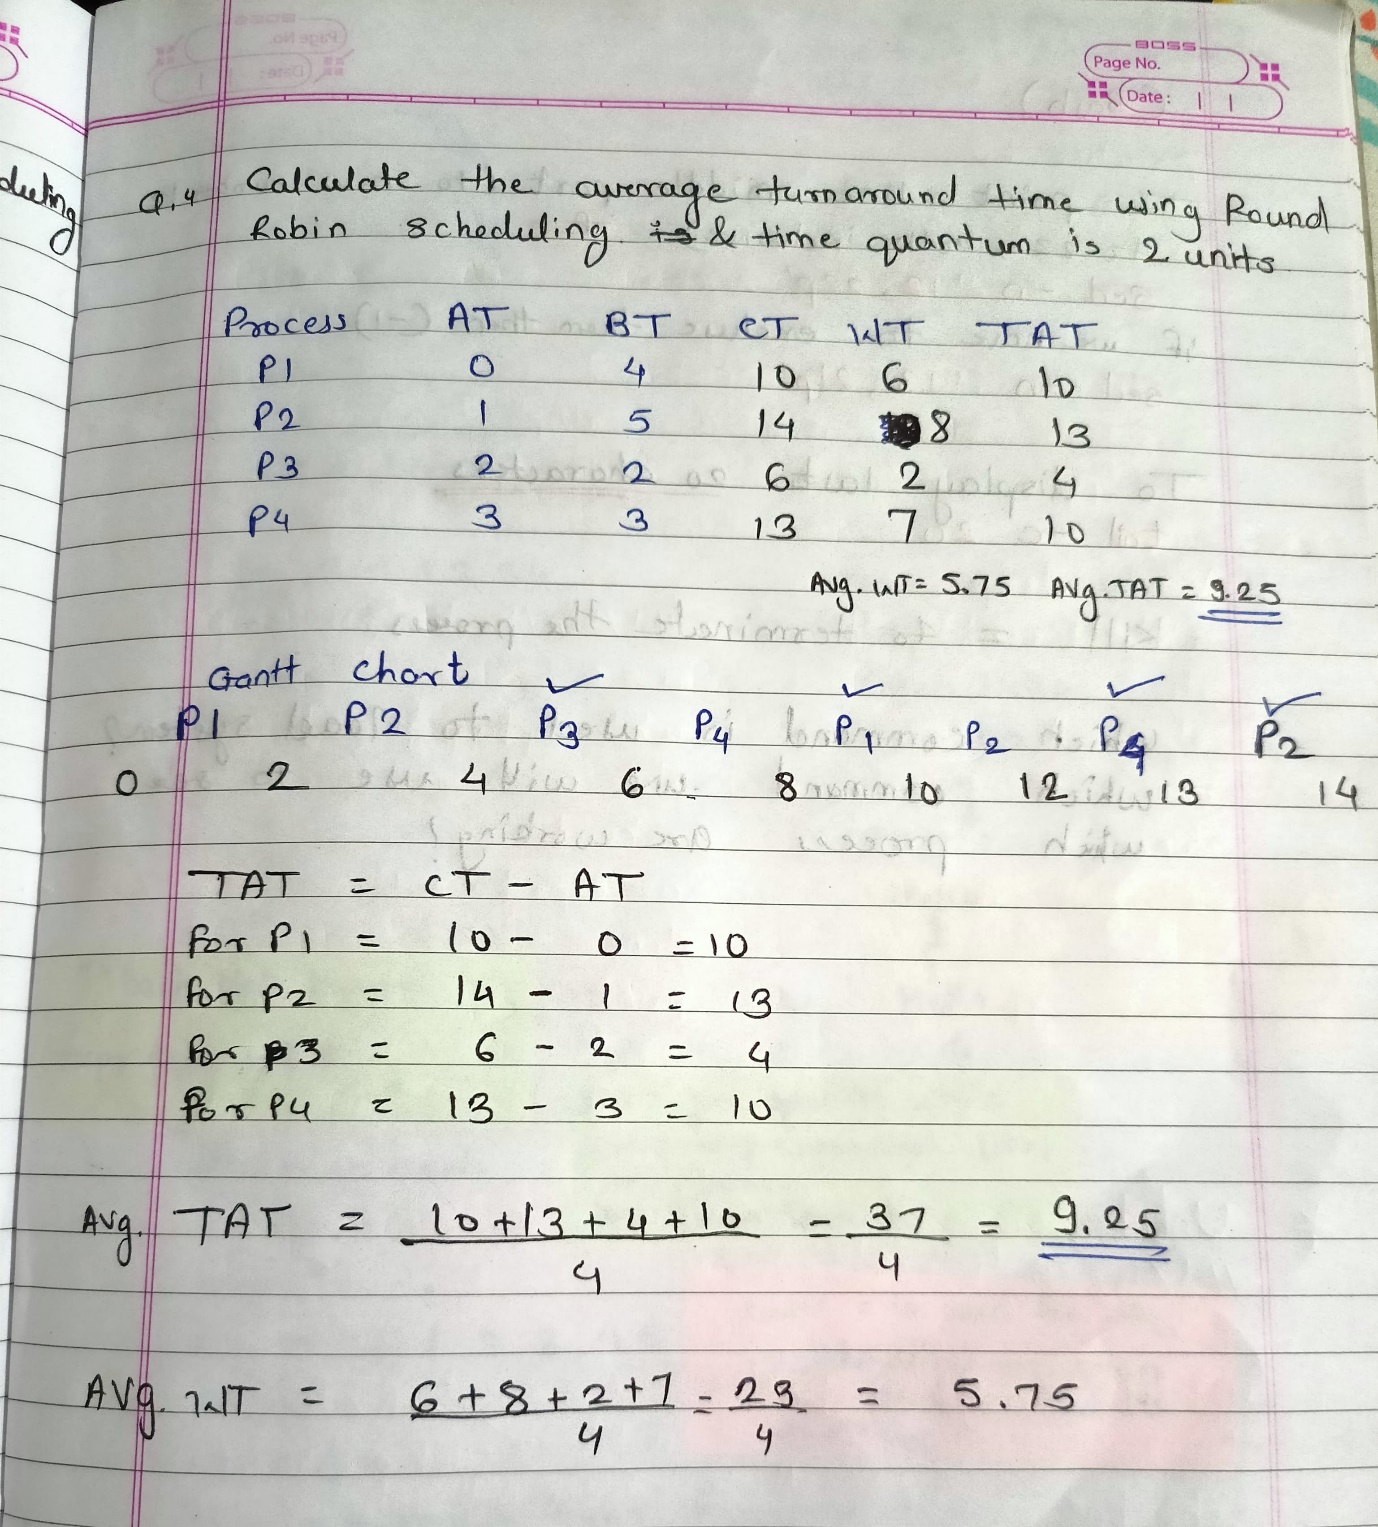 BOSS
Page No.
Date:
duling
Q.4 Calculate the average turnaround time using Round
Robin scheduling & time quantum is 2 units
Process AT BT CT WT TAT
P1 0 4 10 6 10
P2 1 5 14 8 13
P3 2 2 6 2 4
P4 3 3 13 7 10
Avg. WT = 5.75 Avg. TAT = 9.25
Gantt chart
P1 P2 P3 P4 P1 P2 P4 P2
0 2 4 6 8 10 12 13 14
TAT = CT - AT
for P1 = 10 - 0 = 10
for P2 = 14 - 1 = 13
for P3 = 6 - 2 = 4
for P4 = 13 - 3 = 10
Avg. TAT = 10+13+4+10 = 37 = 9.25
4 4
AVg. WT = 6+8+2+7 = 23 = 5.75
4 4